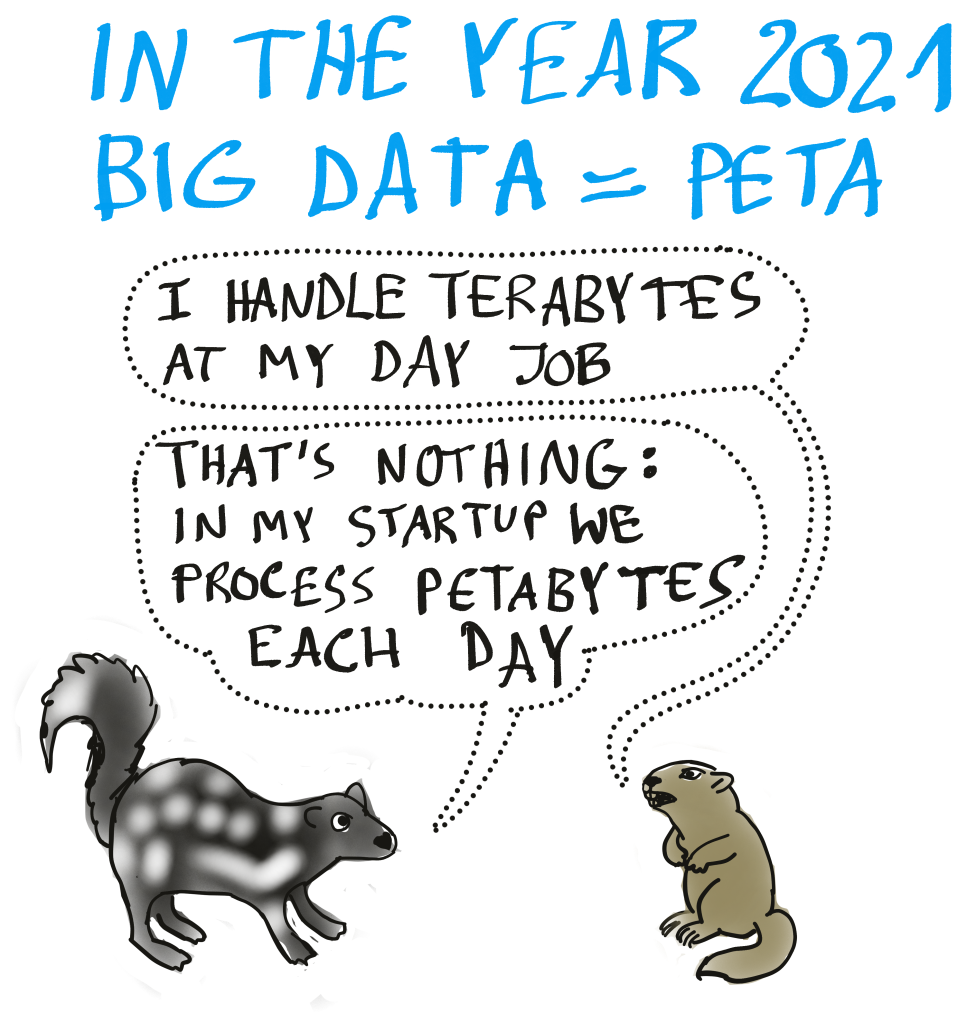 IN THE YEAR 2021
BIG DATA = PETA
I HANDLE TERABYTES
AT MY DAY JOB
THAT'S NOTHING:
IN MY STARTUP WE
PROCESS PETABYTES
EACH DAY